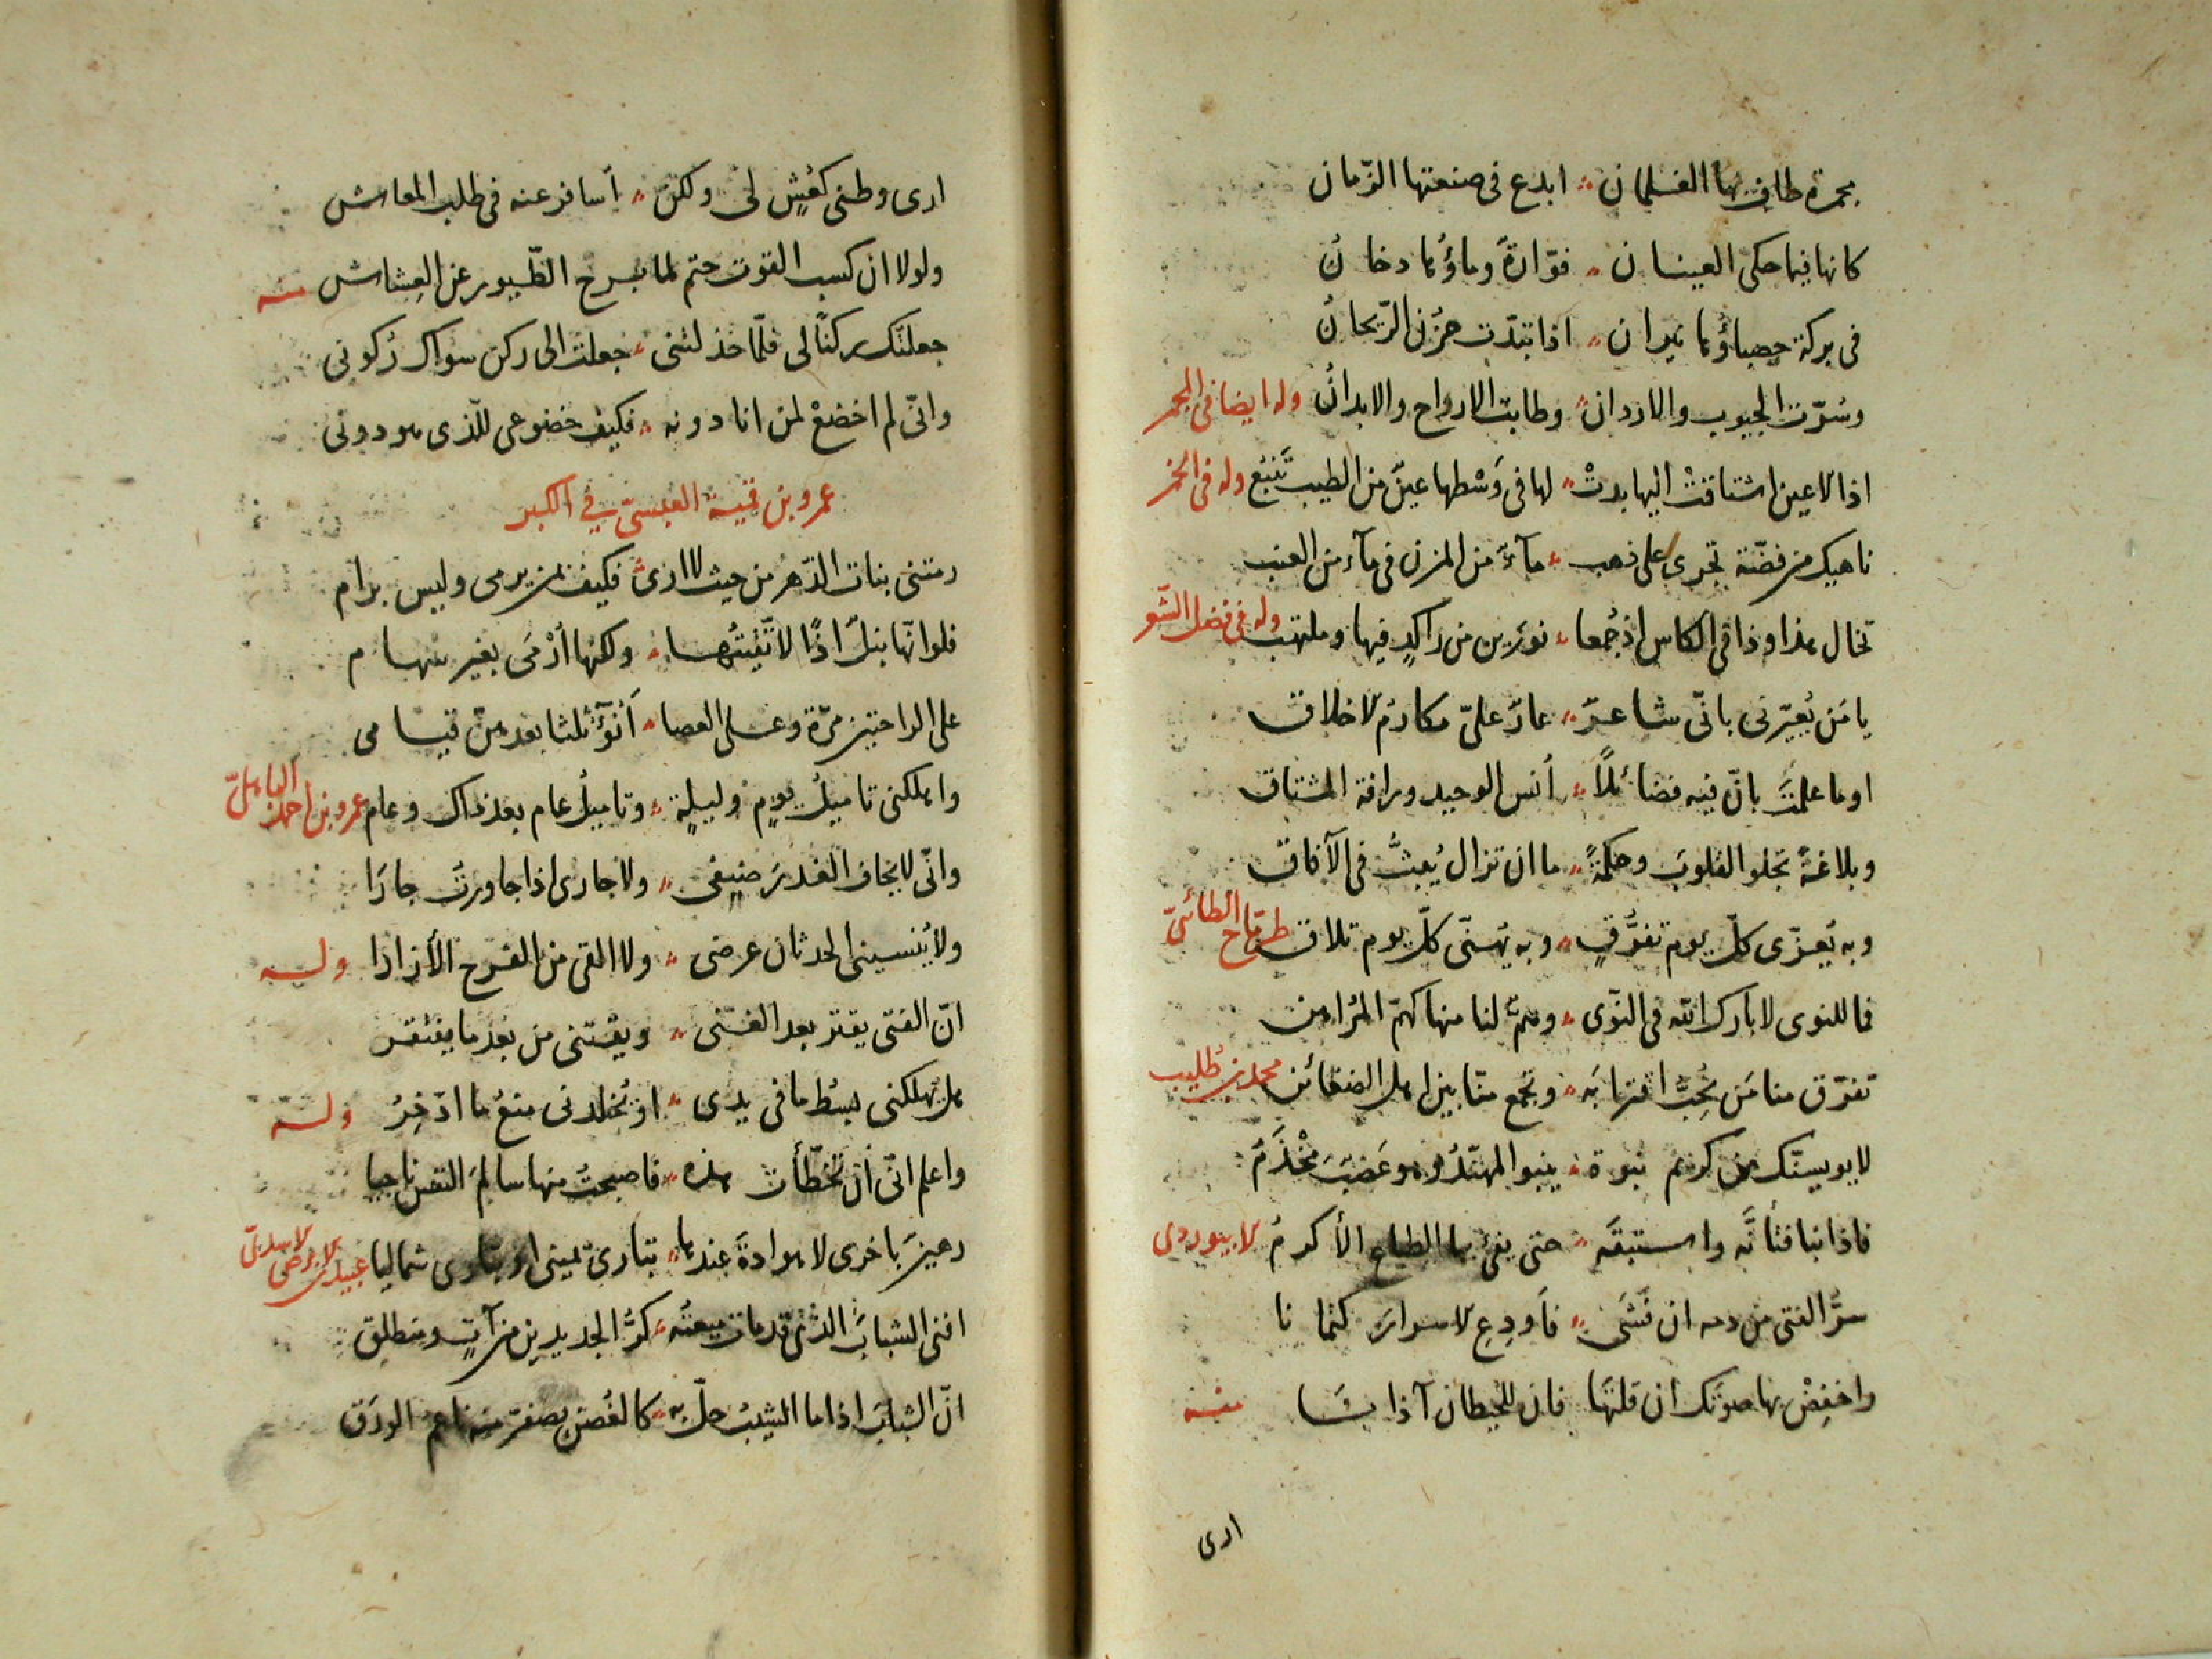 مجمرة طافت بها الغلمان ؞ ابدع فى صنعتها الزّمان
كانها فيما حكى العينان ؞ فوّارةً وماؤُها دخانُ
فى بركة حصباؤُها نيران ؞ اذا تبدّت حزن الرّيحانُ
وسُرّت الجيوب والاردان ؞ وطابت الارواح والابدانُ وله ايضا فى المجمر
اذا الاعين اشتاقتْ اليها بدتْ ؞ لها فى وَسْطها عينٌ من الطيب تَنبُع وله فى الخمر
ناهيك من فضّة تجرى على ذهب ؞ مآءٌ من المزن فى مآء من العنب
تخال هذا وذا فى الكاس اذ جُمعا ؞ نورين من راكدٍ فيها وملتهب وله فى فضل الشعر
يا مَن يُعيّرنى بانّى شاعرٌ ؞ عارٌ علىّ مكارمُ الاخلاق
اوما علمتَ بانّ فيه فضائلًا ؞ أنس الوحيد ورافة المشتاق
وبلاغةً تجلو القلوبَ وحكمةً ؞ ما ان تزال يُبثُّ فى الآفاق
وبه يُعزّى كلّ يوم تفرُّقٍ ؞ وبه يُهنّى كلّ يوم تلاق طرماح الطائىّ
فما للنوى لا بارك الله فى النّوى ؞ وهمٌّ لنا منها كهمّ المُراهن
تفرّق منا مَن نُحبُّ اقترابَه ؞ وتجمع منّا بين اهل الضغائن محمد بن طليب
لا يويسنّك من كريم نبوة ؞ ينبو المهنّدُ وهو عَضبٌ مخْذَمُ
فاذا نبا فتأنَّه واستبقه ؞ حتى يفئ بها الطباع الأكرمُ لابيوردى
سرُّ الفتى من دمه ان فَشَى ؞ فأودِع الاسرارَ كتمانا
واخفِضْ بها صوتَك ان قلتَها فان للحيطان آذانا منه
ارى
ارى وطنى كعُشٍ لى ولكن ؞ أسافر عنه فى طلب المعاش
ولولا ان كسب القوت حتم لما برح الطّيور عن العِشاش منه
جعلتك ركنًا لى فلمّا خذلتنى ؞ جعلت الى ركن سواك رُكونى
وانّى لم اخضعْ لمن انا دونه ؞ فكيف خضوعى للّذى هو دونى
عمرو بن قميئة العبسىّ فى الكبر
رمتنى بنات الدّهر من حيث لا ارى ؞ فكيف بمن يرمى وليس برام
فلو انّها نبلٌ اذًا لاتّقيتُها ؞ ولكنها أرْمَى بغير سهام
على الراحتين مرّة وعلى العصا ؞ أنوُٓ ثلثا بعدهنّ قيامى
واهلكنى تاميلُ يومٍ وليلةٍ ؞ وتاميلُ عام بعد ذاك وعام عمرو بن احمد الباهلىّ
وانّى لا يخاف الغدرَ ضيفى ؞ ولا جارى اذا جاورتُ جارَا
ولا يُنسينى الحدثان عرضى ؞ ولا القى من الفرح الأزارا وله
انّ الفتى يقتر بعد الغنى ؞ ويغتنى من بعد ما يفتقر
هل يُهلكنى بسْط ما فى يدى ؞ او يُخلدنى منعُ ما ادّخِرُ وله
واعلم انّى ان تخطّأت هذه ؞ فاصبحتُ منها سالم النفس ناجيا
رهينٌ باخرى لا هوادةَ عندها ؞ تبارى يمينى او تبارى شماليا عبيد بن الابرص الاسدىّ
افنى الشبابَ الّذى قد مات ميعتُه ؞ كرُّ الجديدين من آتٍ ومنطلق
انّ الشبابَ اذا ما الشيبُ حلّ به ؞ كالغصن يصفرّ منه ناعم الورَق